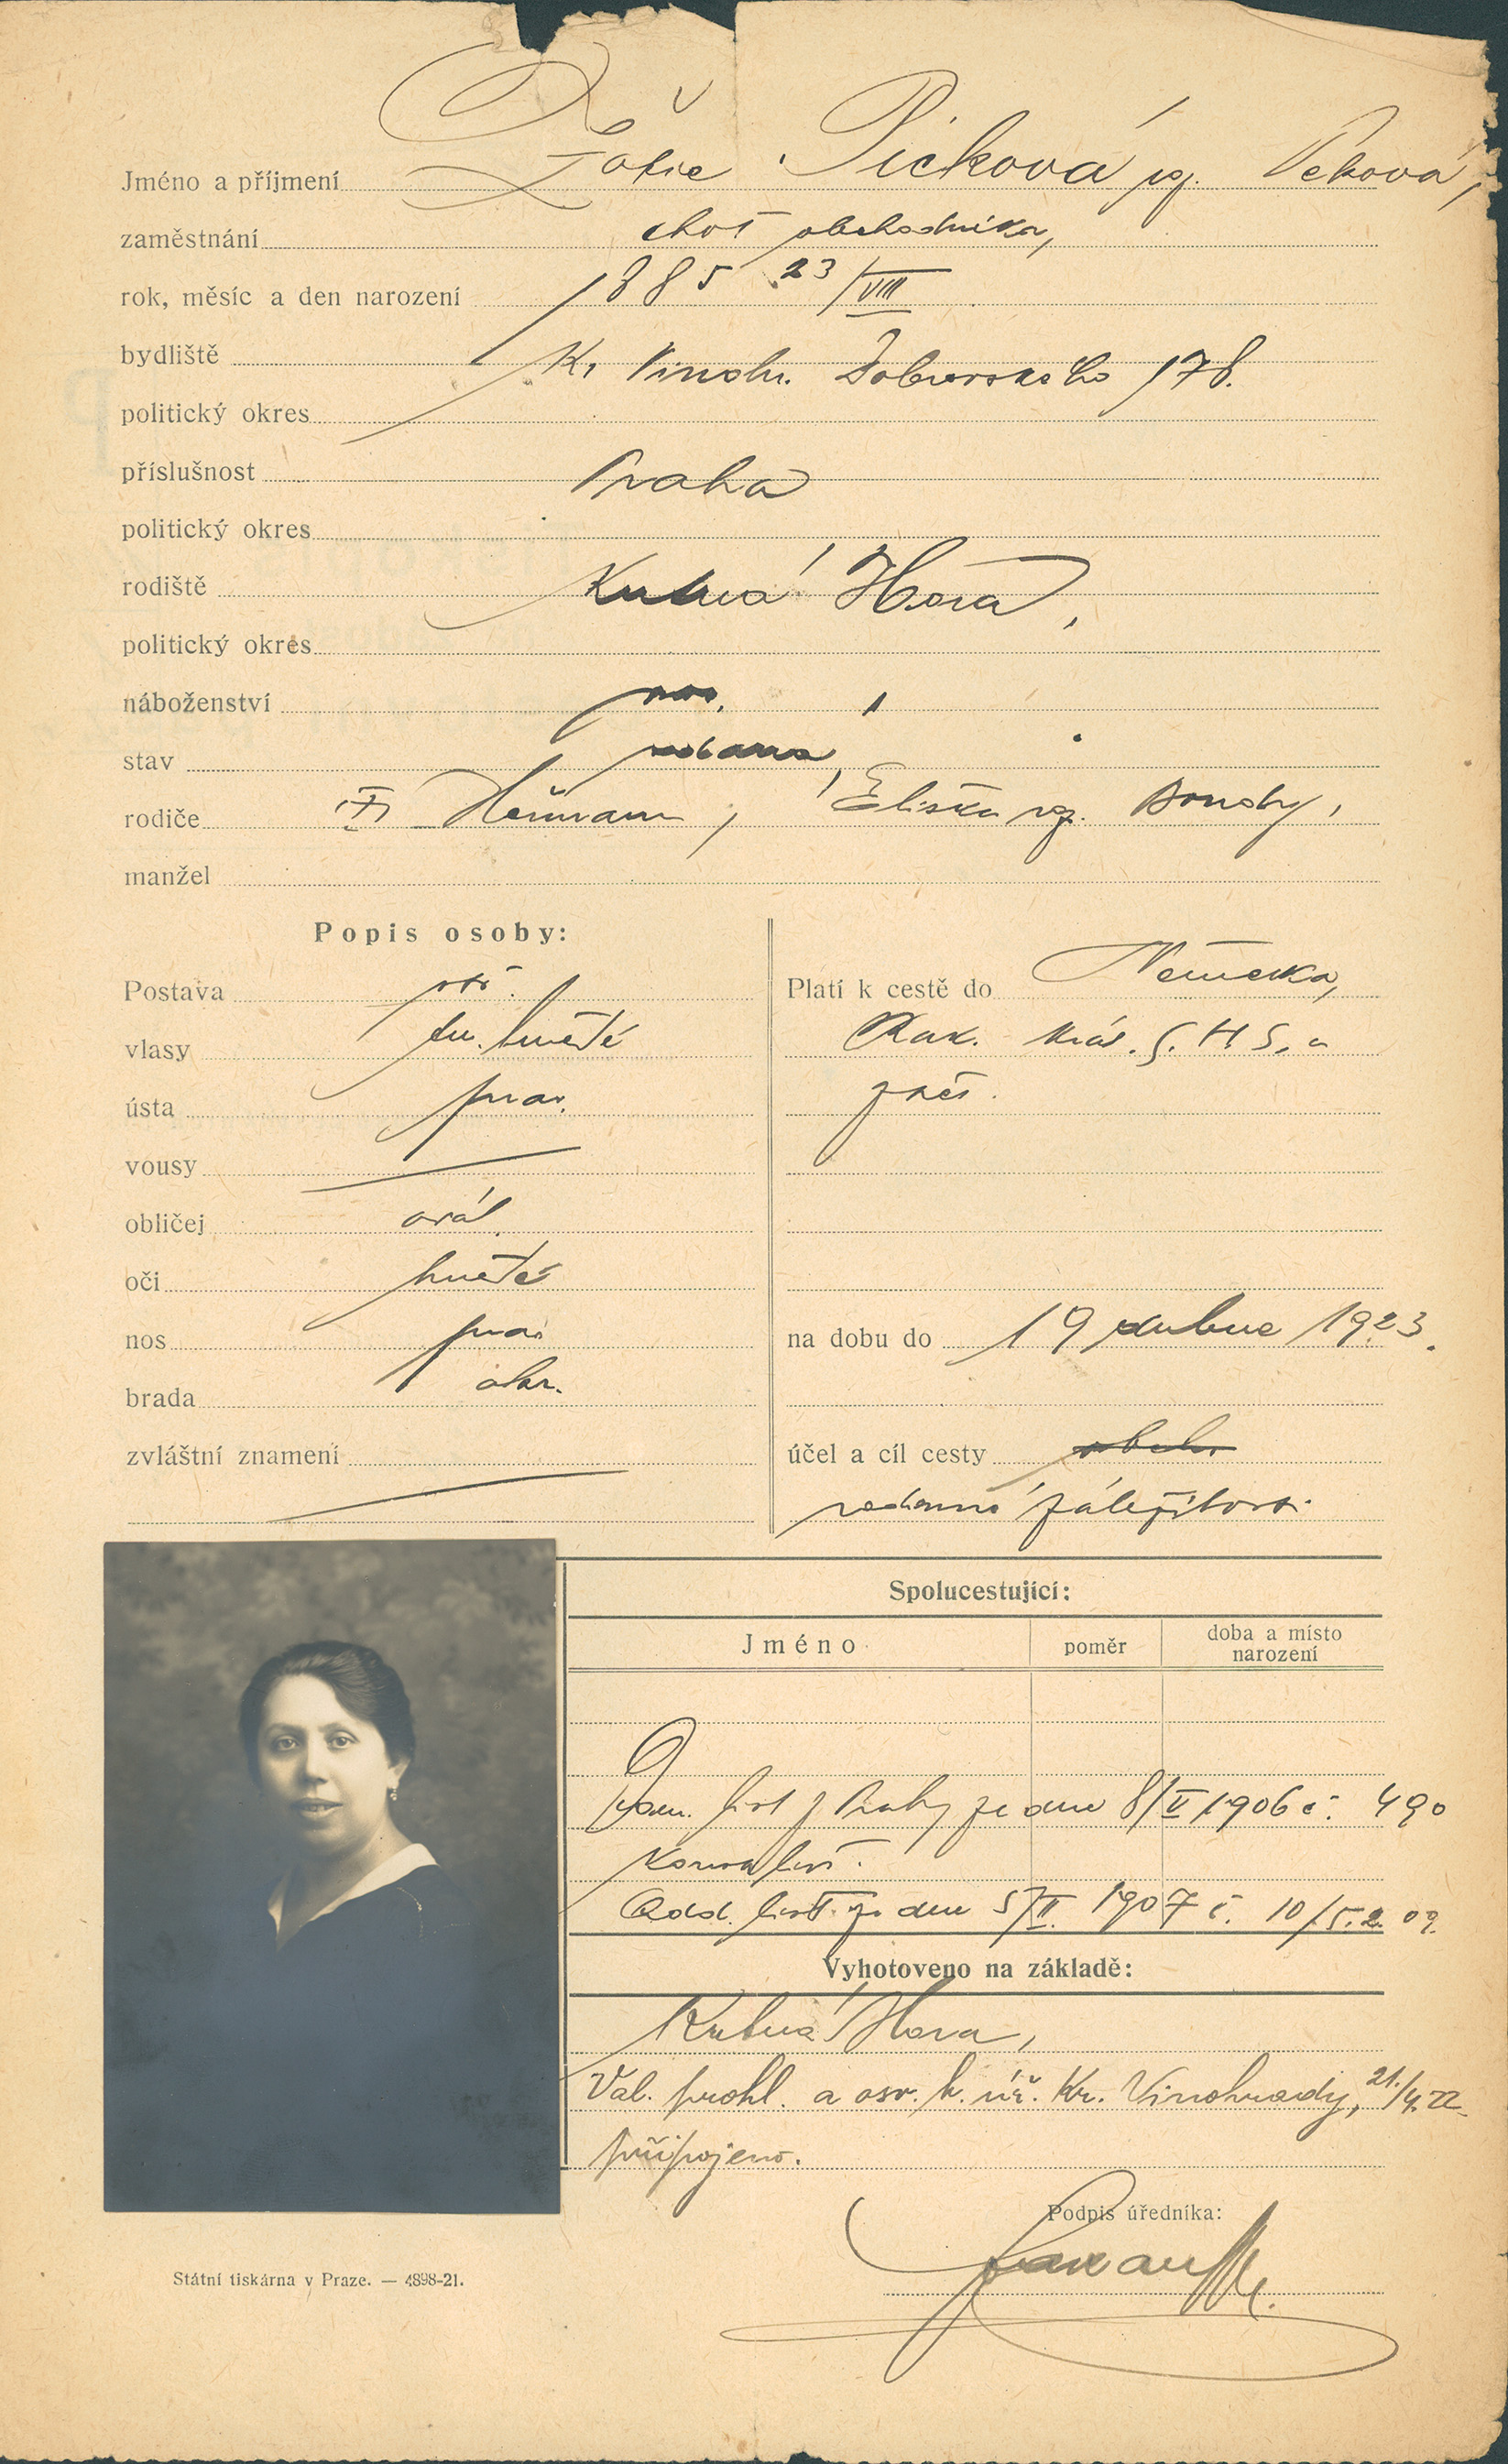 Jméno a příjmení Žofie Picková roz. Peková,
zaměstnání choť obchodníka,
rok, měsíc a den narození 1885 23/VIII
bydliště Kr. Vinohr. Dobrovského 178.
politický okres
příslušnost Praha
politický okres
rodiště Kutná Hora,
politický okres
náboženství
stav
rodiče Heřman, Eliška roz. Bondy,
manžel
Popis osoby:
Postava stř.
vlasy tm. hnědé
ústa prav.
vousy
obličej ovál.
oči hnědé
nos prav.
brada okr.
zvláštní znamení
Platí k cestě do Německa,
Rak. král. S. H. S. a
zpět.
na dobu do 19 dubna 1923.
účel a cíl cesty obch.
rodinné záležitosti
Spolucestující:
Jméno poměr doba a místo narození
Dom. list z Prahy ze dne 8/V 1906 č. 490
Odd. list ze dne 5/II. 1907 č. 10/5.2. 07.
Vyhotoveno na základě:
Kutná Hora,
Val. prohl. a osv. b. úř. Kr. Vinohrady, 21./4. 22
připojeno.
Podpis úředníka:
Státní tiskárna v Praze. — 4898-21.